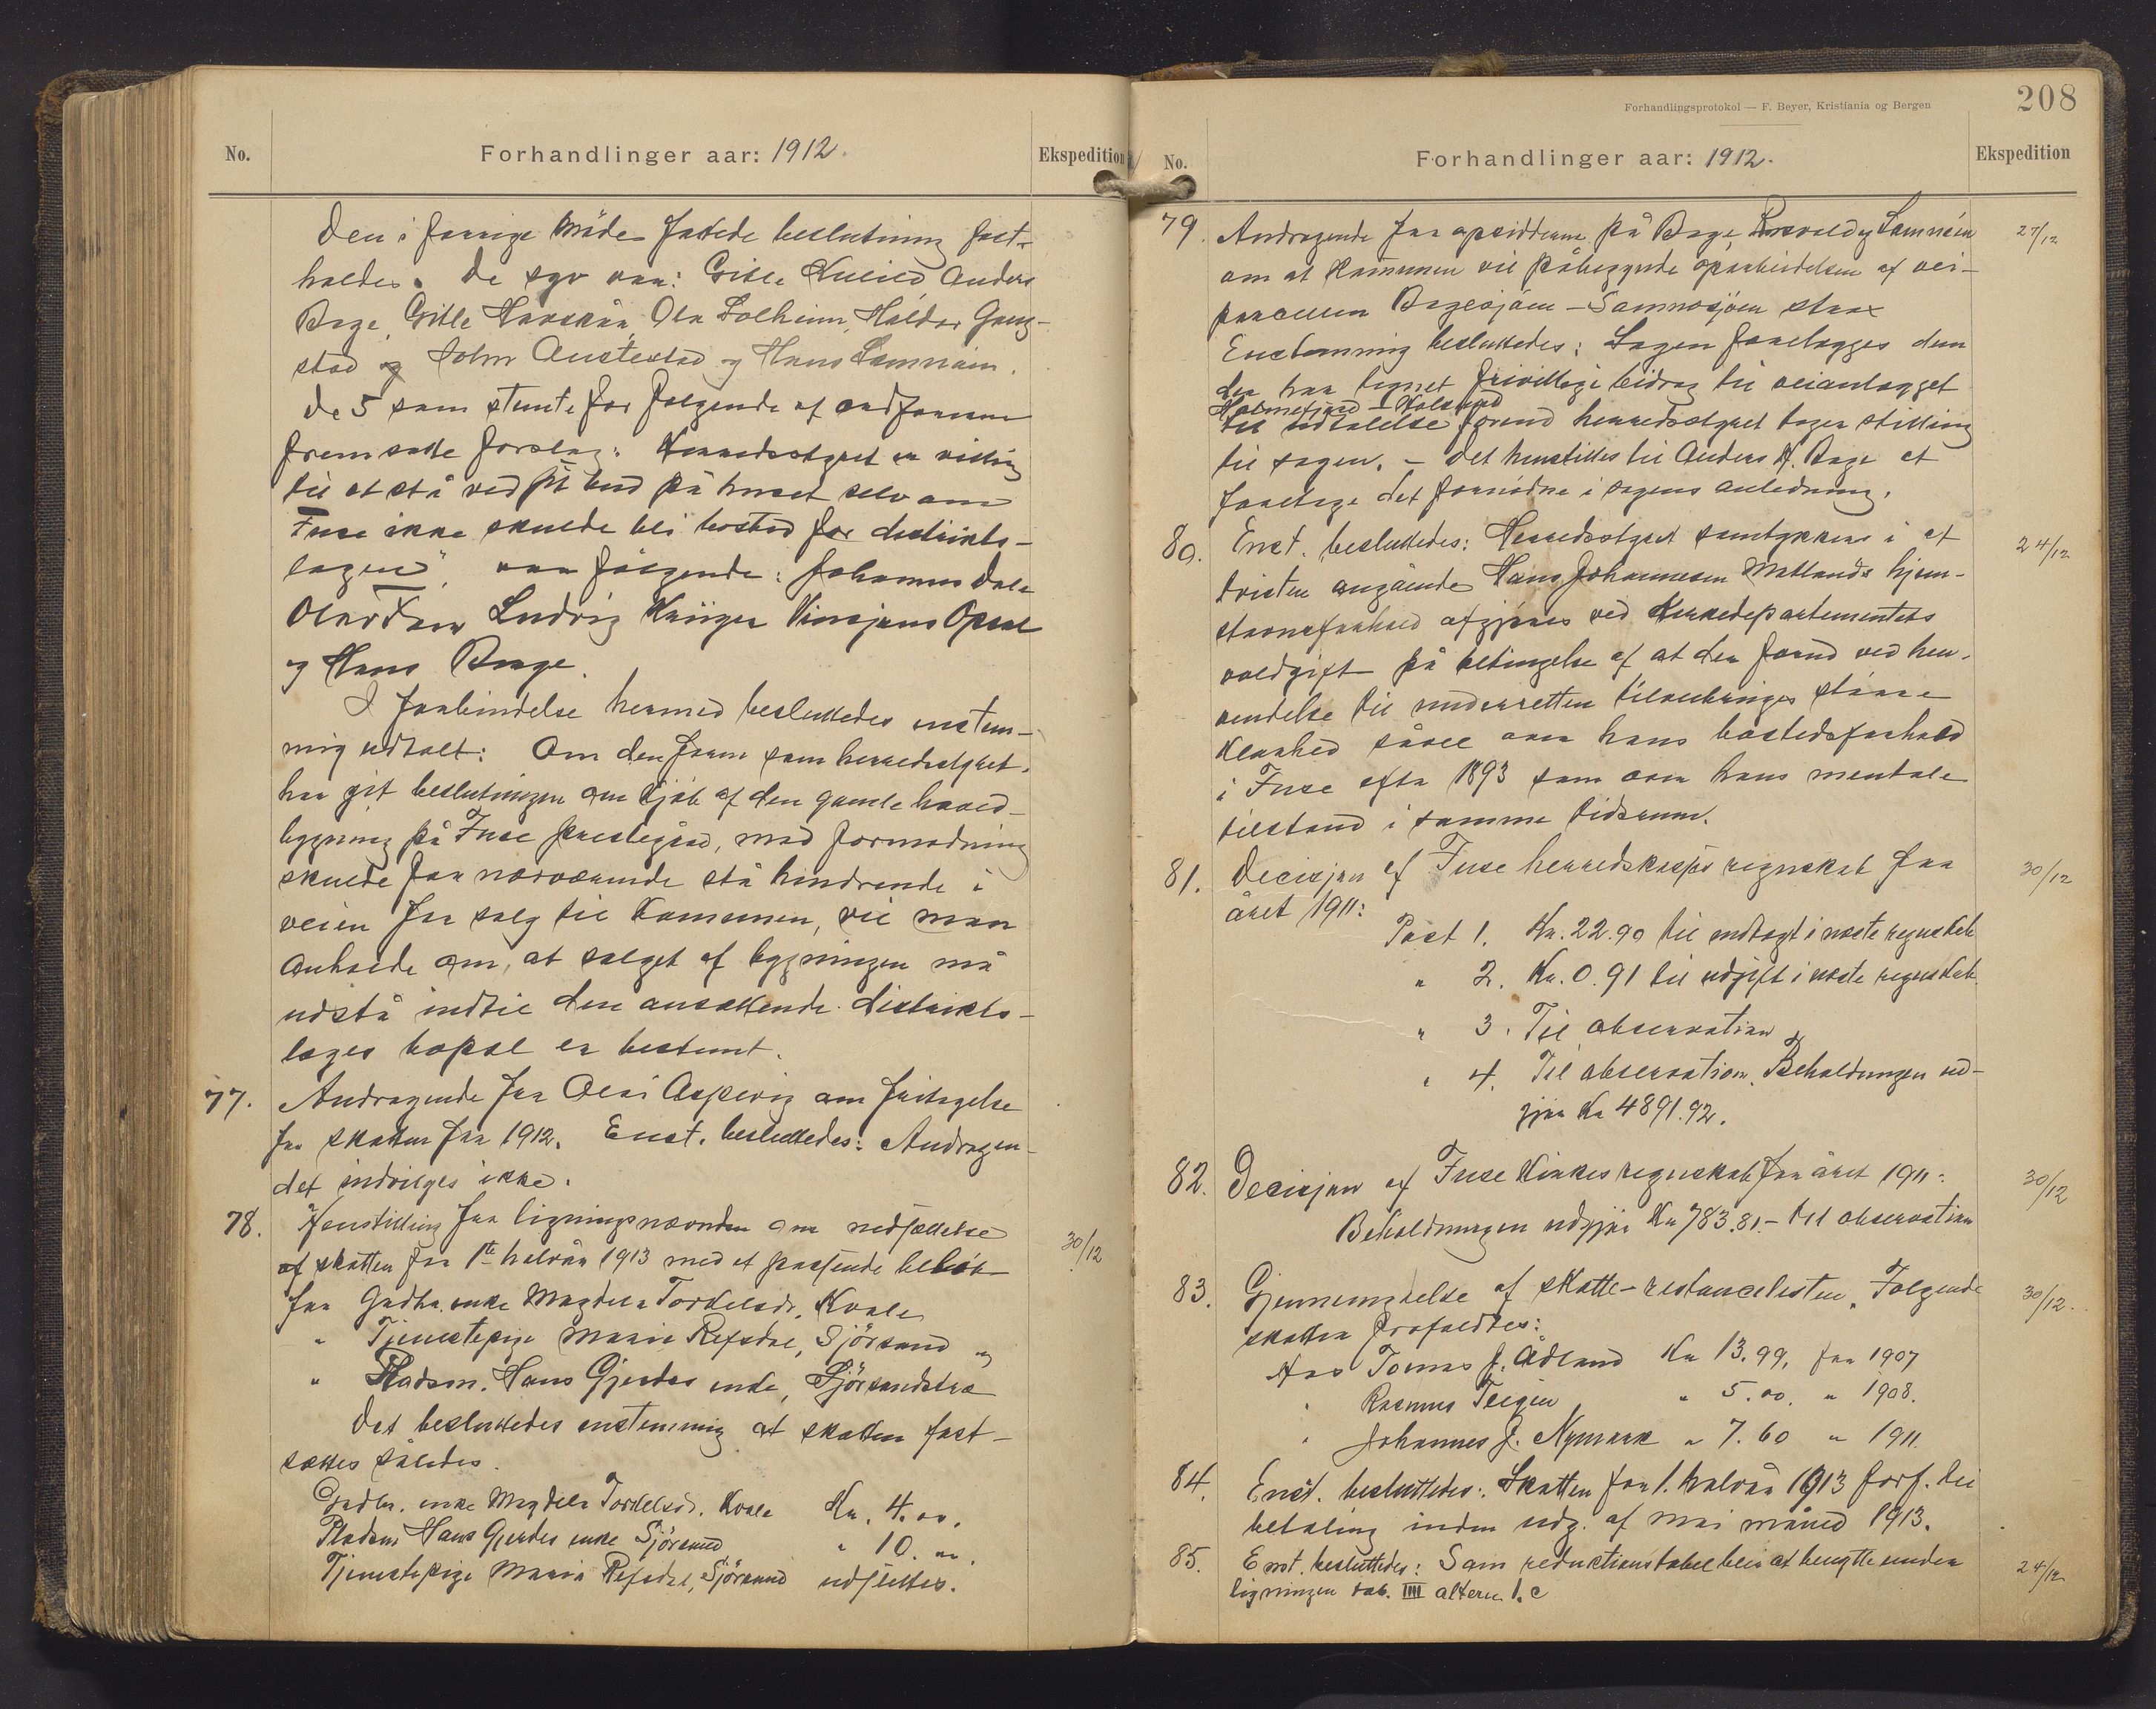 No.
Forhandlinger aar: 1912.
Ekspedition
Den i forrige Möde fattede beslutning fast-
holdes. De syv var: Gitle Kuleid Anders
Bage, Gitle Havskår, Ola Solheim, Haldor Gang-
stad og John Austestad og Hans Samnöin.
De 5 som stemte for følgende af ordføreren
fremsatte forslag: Herredsstyret er villig
til at stå ved sit bud på huset selv om
Fuse ikke skulde bli bosted for distrikts-
lægen", var følgende: Johannes Dale
Olav Ludvig Krüger Vinsjans Opsal
og Hans Bage.
I forbindelse hermed besluttedes enstem-
mig udtalt: Om den form som herredsstyret
har git beslutningen om kjøb af den gamle hoved-
bygning på Fuse prestegård, mod formodning
skulde for nærværende stå hindrende i
veien for salg til Kommunen, vil man
anholde om, at salget af bygningen må
udstå indtil den ansættende distrikts-
læges bopæl er bestemt.
77. Andragende fra Olai Aspevig om fritagelse
for skatten for 1912. Enst. besluttedes: Andragen-
det indvilges ikke.
78. Henstilling fra ligningsnævnden om nedsættelse
af skatten for 1ste halvår 1913 med et passende beløb
for Gadbr. enke Magdela Torkelsdr. Kvale
" Tjenestepige Maria Refsdal, Sjörsand og
" Pladsm. Hans Gjerdes enke, Sjörsandstræ
Det besluttedes enstemmig at skatten fast-
sættes således.
Gadbr. enke Magdela Torkelsd. Kvale Kr. 4.00.
Pladsm Hans Gjerdes enke Sjörsand " 10. "
Tjenestepige Maria Refsdal, Sjörsand udslettes.
30/12
Forhandlingsprotokol — F. Beyer, Kristiania og Bergen
208
No.
Forhandlinger aar: 1912.
Ekspedition
79. Andragende fra opsidderne på Bage, og Samnöin 27/12
om at Kommunen vil påbegynde oparbeidelsen af vei-
parcellen Bagesjöen - Samnøsjöen strax
Enstemmig besluttedes: Sagen forelægges dem
der har tegnet frivillige bidrag til veianlægget
Holmefjord - Kolsund
til udtalelse forend herredsstyret tager stilling
til sagen. - Det henstilles til Anders H. Bage at
foretage det fornödne i sagens anledning.
80. Enst. besluttedes: Herredsstyret samtykker i at 24/12
tvisten angående Hans Johannesen Matlands hjem-
stavnsforhold afgjöres ved Kirkedepartementets
voldgift på betingelse af at der forud ved hen-
vendelse til underretten tilveiebringes större
klarhed såvel om hans bostedsforhold
i Fuse efter 1893 som om hans mentale
tilstand i samme tidsrum.
81. Decisjon af Fuse herredskasses regnskab for 30/12
året 1911:
Post 1. Kr. 22.90 til indtægt i næste regnskab
" 2. Kr. 0.91 til udgift i næste regnskab.
" 3. Til observation
" 4. Til observation. Beholdningen ud-
gjör Kr 4891.92.
82. Decisjon af Fuse Kirkes regnskab for året 1911: 30/12
Beholdningen udgjör Kr 783.81 - til observation
83. Gjennemgåelse af skatte-restancelisten. Følgende 30/12.
skatter frafaldtes:
Hos Tomas J. Ådland Kr 13.99. for 1907
" Rasmus Teigen " 5.00. " 1908.
" Johannes J. Nymark " 7.60 " 1911.
84. Enst. besluttedes: Skatten for 1. halvår 1913 forf. til
betaling inden udg. af mai måned 1913.
85. Enst. besluttedes: Som reductionstabel blir at benytte under 24/12
ligningen tab. IIII altern 1. c